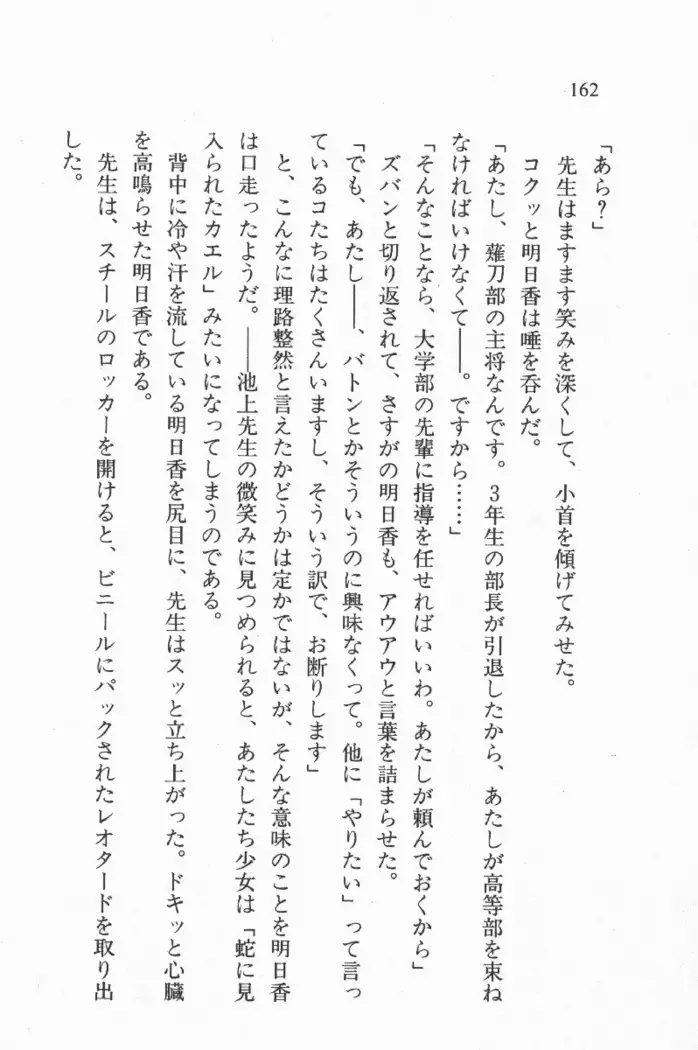 162
「あら？」
先生はますます笑みを深くして、小首を傾げてみせた。
コクッと明日香は唾を呑んだ。
「あたし、薙刀部の主将なんです。３年生の部長が引退したから、あたしが高等部を束ね
なければいけなくて――。ですから……」
「そんなことなら、大学部の先輩に指導を任せればいいわ。あたしが頼んでおくから」
ズバンと切り返されて、さすがの明日香も、アウアウと言葉を詰まらせた。
「でも、あたし――、バトンとかそういうのに興味なくって。他に「やりたい」って言っ
ているコたちはたくさんいますし、そういう訳で、お断りします」
と、こんなに理路整然と言えたかどうかは定かではないが、そんな意味のことを明日香
は口走ったようだ。――池上先生の微笑みに見つめられると、あたしたち少女は「蛇に見
入られたカエル」みたいになってしまうのである。
背中に冷や汗を流している明日香を尻目に、先生はスッと立ち上がった。ドキッと心臓
を高鳴らせた明日香である。
先生は、スチールのロッカーを開けると、ビニールにパックされたレオタードを取り出
した。